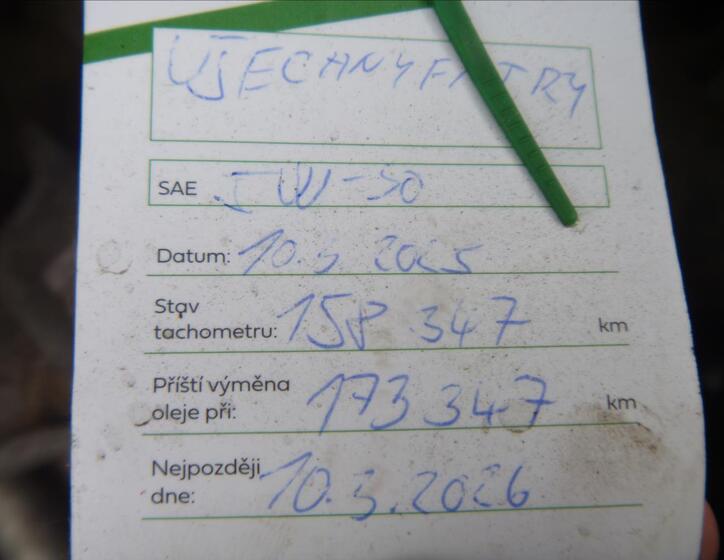 VŠECHNY FILTRY
SAE 5W-30
Datum: 10.3.2025
Stav
tachometru: 158 347 km
Příští výměna
oleje při: 173 347 km
Nejpozději
dne: 10.3.2026